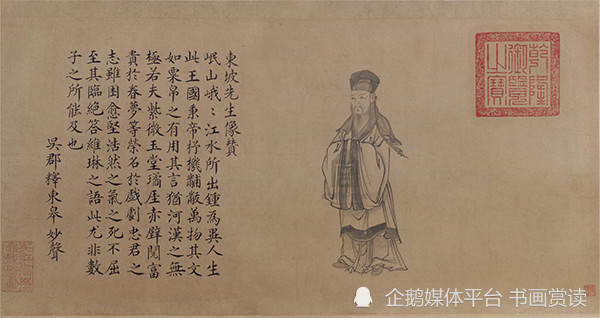 乾隆御覽之寶
東坡先生像贊
岷山峨〻江水所出鍾為異人生
此王國秉帝杼機黼黻萬物其文
如粟帛之有用其言猶河漢之無
極若夫紫微玉堂瓊厓赤壁閱富
貴於春夢等榮名於戲劇忠君之
志雖困愈堅浩然之氣之死不屈
至其臨絕答維琳之語此尤非數
子之所能及也
吳郡釋東皋妙聲
企鹅媒体平台 书画赏读